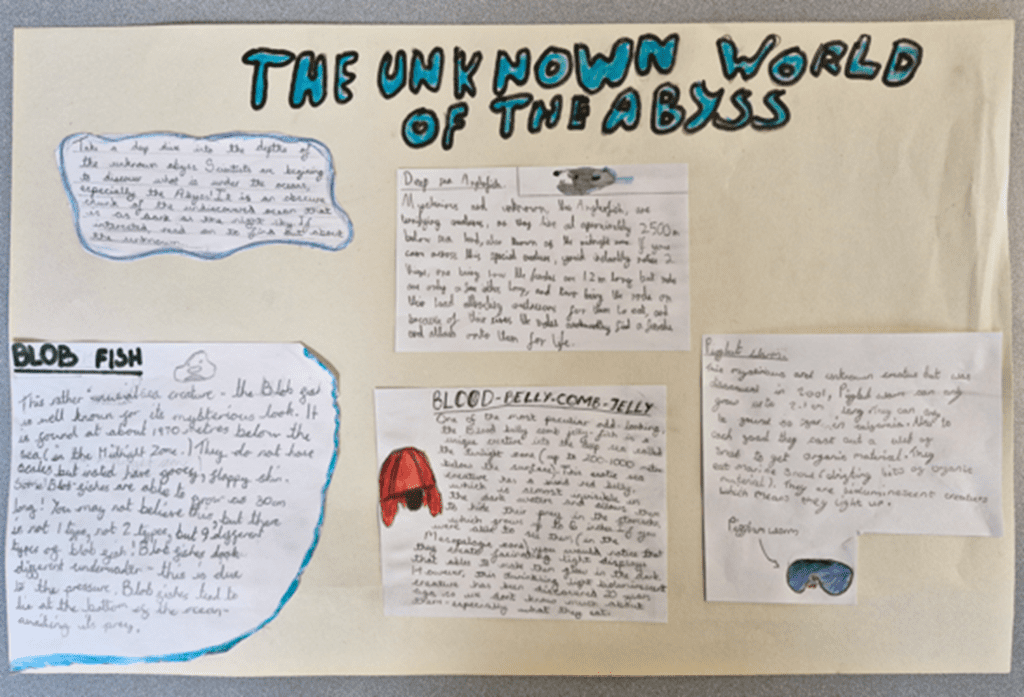 THE UNKNOWN WORLD
OF THE ABYSS
Take a deep dive into the depths of
the unknown abyss Scientists are begining
to discover what is under the oceans,
especially the Abyss! It is an obscure
chunk of the undiscovered ocean that
is as dark as the night sky. If
interested, read on to find out about
the unknown
Deep sea Anglerfish.
Mysterious and unknown, the Anglerfish, are
terrifying creatures, as they live at aproximately 2500m
below sea level, also known as the midnight zone. If you
come across this special creature, you'd instantly notice 2
things, one being how the females are 1.2m long but males
are only a few long, and
this for them to eat, and
because of the males find a female
and attach onto them for life.
BLOB FISH
This rather unusual sea creature - the Blob fish
is well known for its mysterious look. It
is found at about 1970 metres below the
sea (in the Midnight Zone.) They do not have
scales but insted have gooey, flappy skin.
Some Blob fishes are able to
grow to 30cm
long! You may not believe this, but there
is not 1 type, not 2 types, but 9 different
types of blob fish! Blob fishes look
different underwater - this is due
to the pressure. Blob fishes tend to
lie at the bottom of the ocean -
awaiting its prey.
BLOOD-BELLY-COMB-JELLY
One of the most peculiar odd-looking,
the Blood belly comb jelly-fish is a
unique creature into the deep sea called
the twilight zone (up to 200-1000 metres
below the surface). This exotic sea
creature has a vivid red belly,
which is almost invisible in
the dark waters and allows them
to hide their prey in the stomachs,
which grows up to 6 inches - if you
were able to see them (in the
Mesopelagic zone) you would notice that
they create fascinating light displays
that ables to make them glow in the dark.
However, this twinkling light bioluminescent
creature has been discovered 20 years
ago so we don't know much about
them - especially what they eat.
Pigbutt worm.
This mysterious and unknown creature that was
discovered in 2001, Pigbutt worm can only
grow up to long. They can only
be found so far in California. How to
catch food they cast out a web of
snot to get organic material. They
eat marine snow (drifting bits of organic
material). They are bioluminescent creatures
which means they light up.
Pigbutt worm